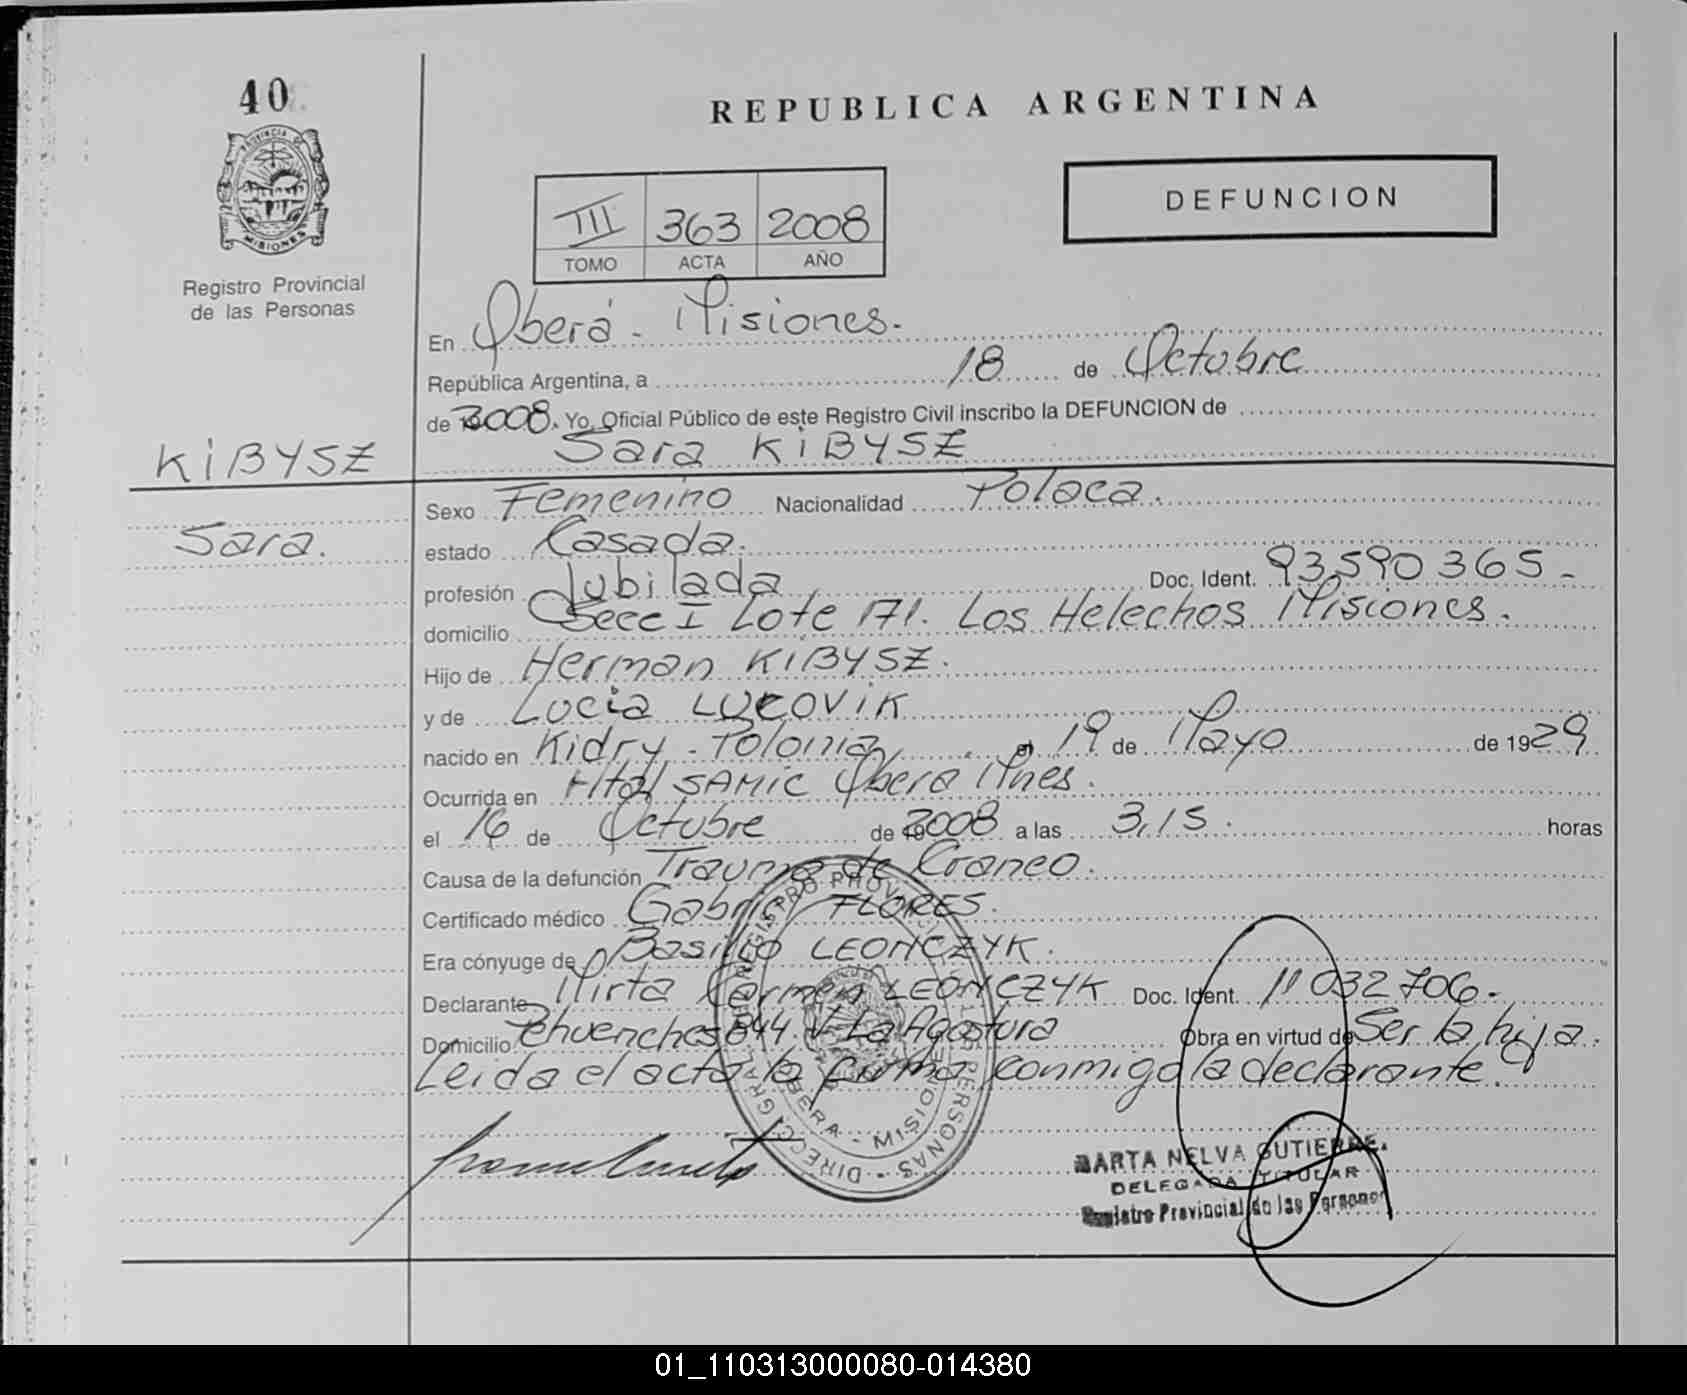 40
REPUBLICA ARGENTINA
PROVINCIA DE
MISIONES
Registro Provincial
de las Personas
III 363 2008
TOMO ACTA AÑO
DEFUNCION
En Oberá - Misiones.
República Argentina, a 18 de Octubre
de 2008. Yo, Oficial Público de este Registro Civil inscribo la DEFUNCION de
KiBYSZ
Sara KiBYSZ
Sara.
Sexo Femenino Nacionalidad Polaca.
estado Casada.
profesión Jubilada Doc. Ident. 93590365-
domicilio Secc I Lote 171. Los Helechos Misiones.
Hijo de Herman KiBYSZ.
y de Lucia
nacido en Kidry - Polonia el 19 de Mayo de 1929
Ocurrida en Hital SAMIC Obera Mnes.
el 16 de Octubre de 2008 a las 3,15. horas
Causa de la defunción Trauma de Craneo.
Certificado médico Gabriel FLORES.
Era cónyuge de Basilio LEONCZYK.
Declarante Mirta Carmen LEONCZYK Doc. Ident. 11032706-
Domicilio Pehuenches 844 V- La Agostura Obra en virtud de Ser la hija.
Leida el acta la firma conmigo la declarante.
DIREC. GRAL. REGISTRO PROVINCIAL DE LAS PERSONAS
OBERA - MISIONES
MARTA NELVA GUTIERRE
DELEGADA TITULAR
Registro Provincial de las Personas
01_110313000080-014380